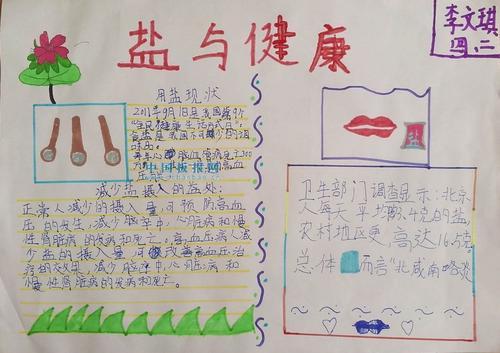 盐与健康
李文琪
四、二
用盐现状
2011年9月1日是我国第9个
减少盐摄入的益处:
正常人减少的摄入量可预防高血
压的发生,减少脑卒中,心脏病和慢
性肾脏病的发病和死亡;高血压病人减
少盐的摄入量可改善高血压治
病的效果,减少脑卒中,心脏病和
慢性肾脏病的发病和死亡。
盐
卫生部门调查显示:北京
人每天平均13.4克的盐,
农村地区更高达16.5克
总体而言"北咸南略淡
中国板报网